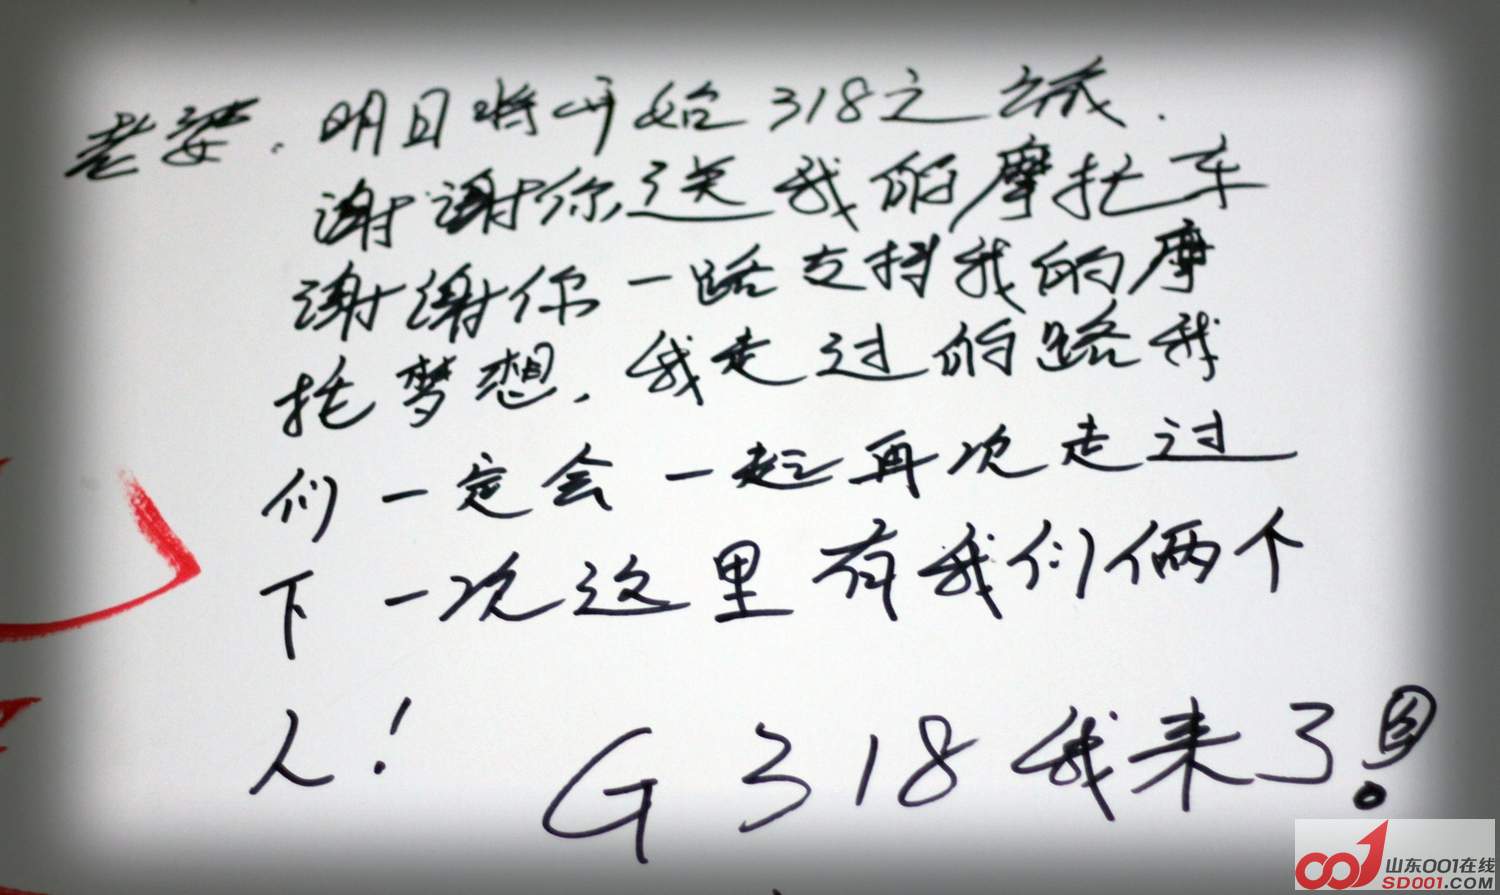 老婆.明日将开始318之旅.
谢谢你送我的摩托车
谢谢你一路支持我的摩
托梦想.我走过的路我
们一定会一起再次走过
下一次这里有我们俩个
人!
G318我来了!
山东001在线
SD001.COM